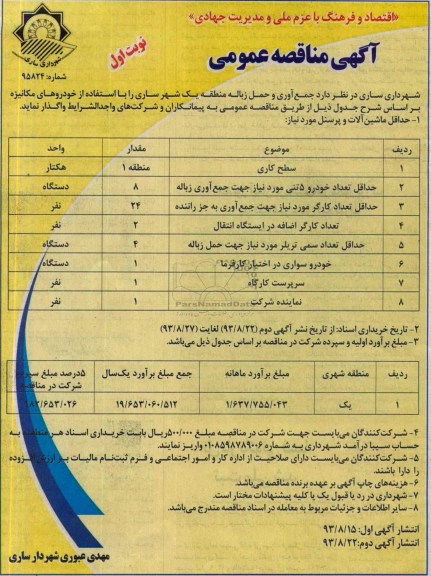 «اقتصاد و فرهنگ با عزم ملی و مدیریت جهادی»
شهرداری ساری
آگهی مناقصه عمومی
نوبت اول
شماره: ۹۵۸۲۴
شهرداری ساری در نظر دارد جمع‌آوری و حمل زباله منطقه یک شهر ساری را با استفاده از خودروهای مکانیزه
بر اساس شرح جدول ذیل از طریق مناقصه عمومی به پیمانکاران و شرکت‌های واجدالشرایط واگذار نماید.
۱- حداقل ماشین‌آلات و پرسنل مورد نیاز:
ردیف موضوع مقدار واحد
۱ سطح کاری منطقه ۱ هکتار
۲ حداقل تعداد خودرو ۵تنی مورد نیاز جهت جمع‌آوری زباله ۸ دستگاه
۳ حداقل تعداد کارگر مورد نیاز جهت جمع‌آوری به جز راننده ۲۴ نفر
۴ تعداد کارگر اضافه در ایستگاه انتقال ۲ نفر
۵ حداقل تعداد سمی تریلر مورد نیاز جهت حمل زباله ۴ دستگاه
۶ خودرو سواری در اختیار کارفرما ۱ دستگاه
۷ سرپرست کارگاه ۱ نفر
۸ نماینده شرکت ۱ نفر
۲- تاریخ خریداری اسناد: از تاریخ نشر آگهی دوم (۹۳/۸/۲۲) لغایت (۹۳/۸/۲۷)
۳- مبلغ برآورد اولیه و سپرده شرکت در مناقصه بر اساس جدول ذیل می‌باشد.
ردیف منطقه شهری مبلغ برآورد ماهانه جمع مبلغ برآورد یک‌سال ۵درصد مبلغ سپرده شرکت در مناقصه
۱ یک ۱/۶۳۷/۷۵۵/۰۴۳ ۱۹/۶۵۳/۰۶۰/۵۱۲ ۹۸۲/۶۵۳/۰۲۶
۴- شرکت‌کنندگان می‌بایست جهت شرکت در مناقصه مبلغ ۵۰۰/۰۰۰ریال بابت خریداری اسناد هر منطقه به
حساب سیبا درآمد شهرداری به شماره ۰۱۰۸۵۹۸۷۸۹۰۰۶ واریز نمایند.
۵- شرکت‌کنندگان می‌بایست دارای صلاحیت از اداره کار و امور اجتماعی و فرم ثبت‌نام مالیات بر ارزش افزوده
را دارا باشند.
۶- هزینه‌های چاپ آگهی بر عهده برنده مناقصه می‌باشد.
۷- شهرداری در رد یا قبول یک یا کلیه پیشنهادات مختار است.
۸- سایر اطلاعات و جزئیات مربوط به معامله در اسناد مناقصه مندرج می‌باشد.
انتشار آگهی اول: ۹۳/۸/۱۵
انتشار آگهی دوم: ۹۳/۸/۲۲
مهدی عبوری شهردار ساری